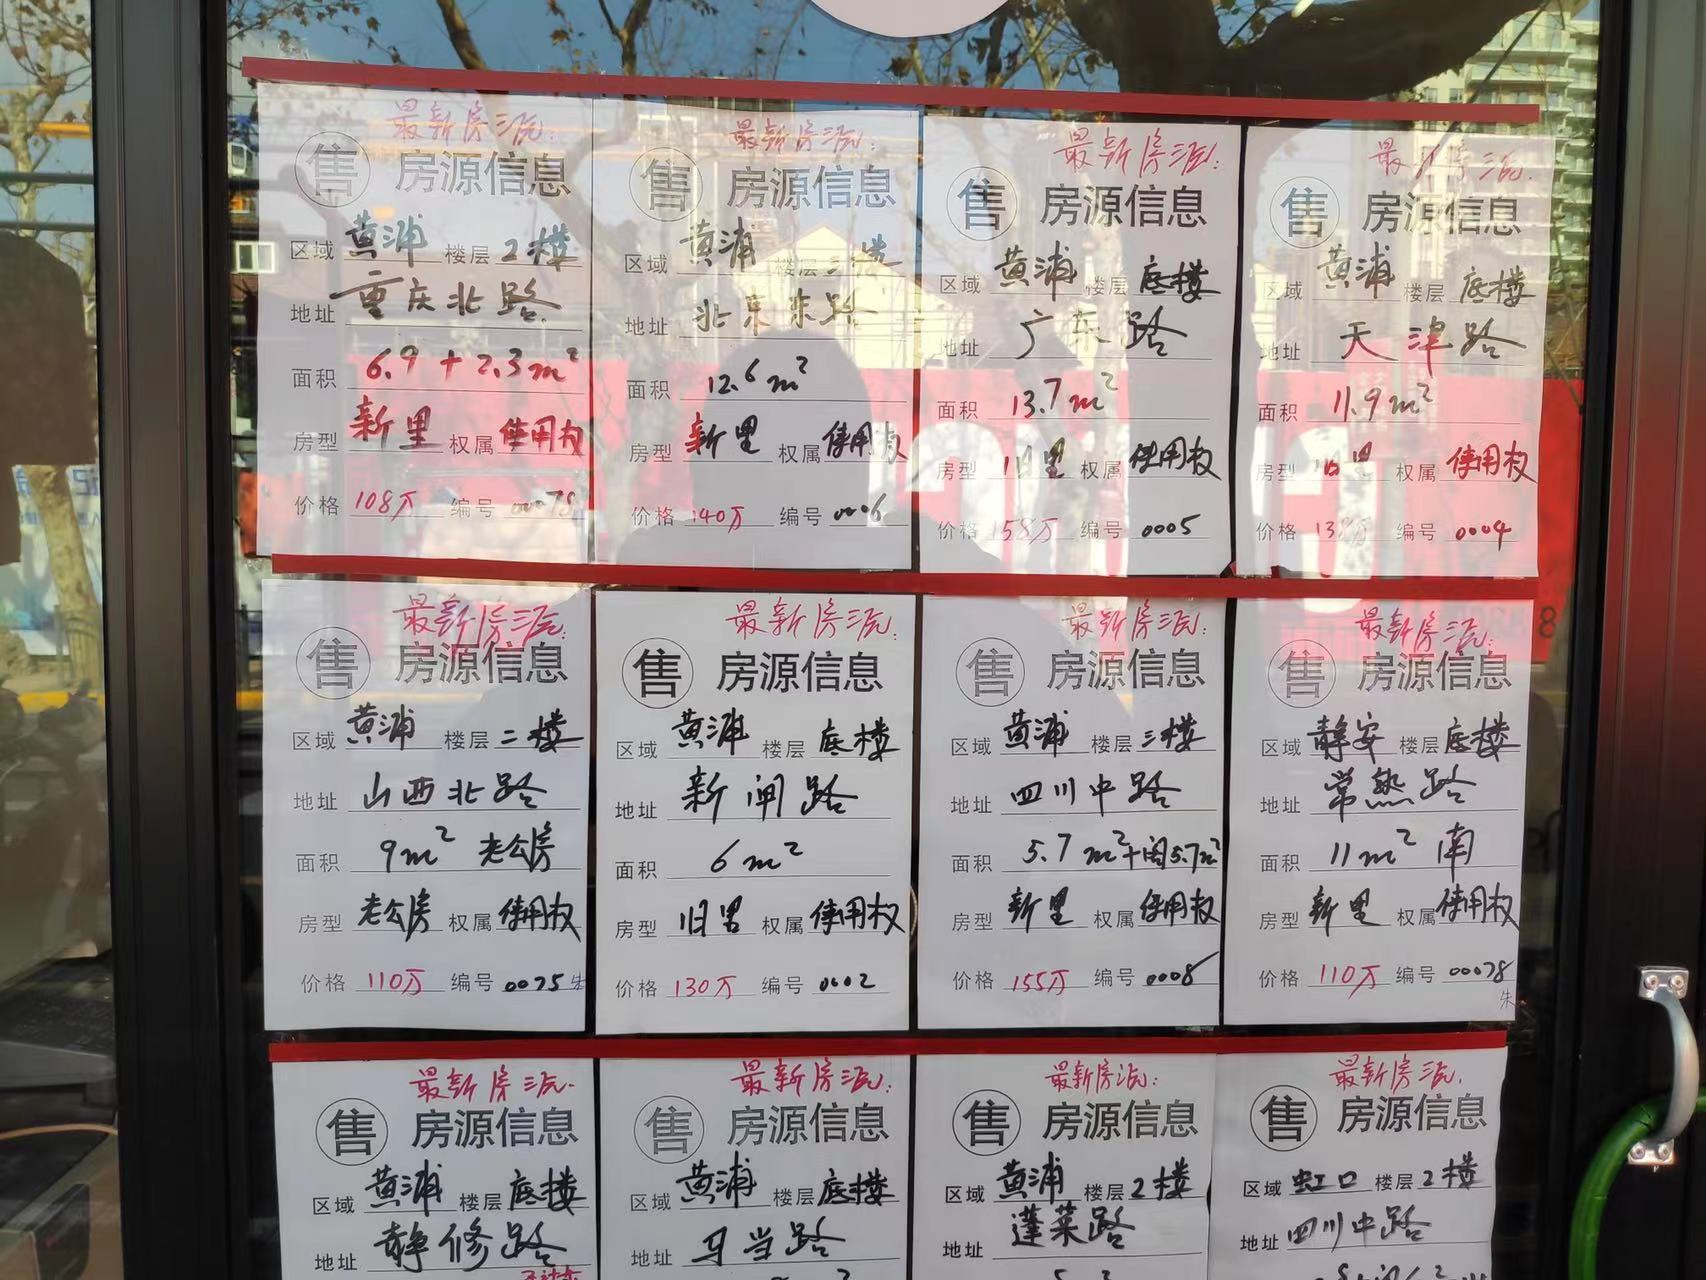 最新房源:
售 房源信息
区域 黄浦 楼层 2楼
地址 重庆北路
面积 6.9+2.3m²
房型 新里 权属 使用权
价格 108万 编号 00078
最新房源:
售 房源信息
区域 黄浦 楼层 三楼
地址 北京东路
面积 12.6m²
房型 新里 权属 使用权
价格 140万 编号 0006
最新房源:
售 房源信息
区域 黄浦 楼层 底楼
地址 广东路
面积 13.7m²
房型 旧里 权属 使用权
价格 158万 编号 0005
最新房源:
售 房源信息
区域 黄浦 楼层 底楼
地址 天津路
面积 11.9m²
房型 旧里 权属 使用权
价格 编号 0004
最新房源:
售 房源信息
区域 黄浦 楼层 二楼
地址 山西北路
面积 9m² 老公房
房型 老公房 权属 使用权
价格 110万 编号 0075 朱
最新房源:
售 房源信息
区域 黄浦 楼层 底楼
地址 新闸路
面积 6m²
房型 旧里 权属 使用权
价格 130万 编号 0002
最新房源:
售 房源信息
区域 黄浦 楼层 三楼
地址 四川中路
面积 5.7m²+阁5.7m²
房型 新里 权属 使用权
价格 155万 编号 0008
最新房源:
售 房源信息
区域 静安 楼层 底楼
地址 常熟路
面积 11m² 南
房型 新里 权属 使用权
价格 110万 编号 00078
朱
最新房源.
售 房源信息
区域 黄浦 楼层 底楼
地址 静修路
最新房源:
售 房源信息
区域 黄浦 楼层 底楼
地址 马当路
最新房源:
售 房源信息
区域 黄浦 楼层 2楼
地址 蓬莱路
最新房源.
售 房源信息
区域 虹口 楼层 2楼
地址 四川中路